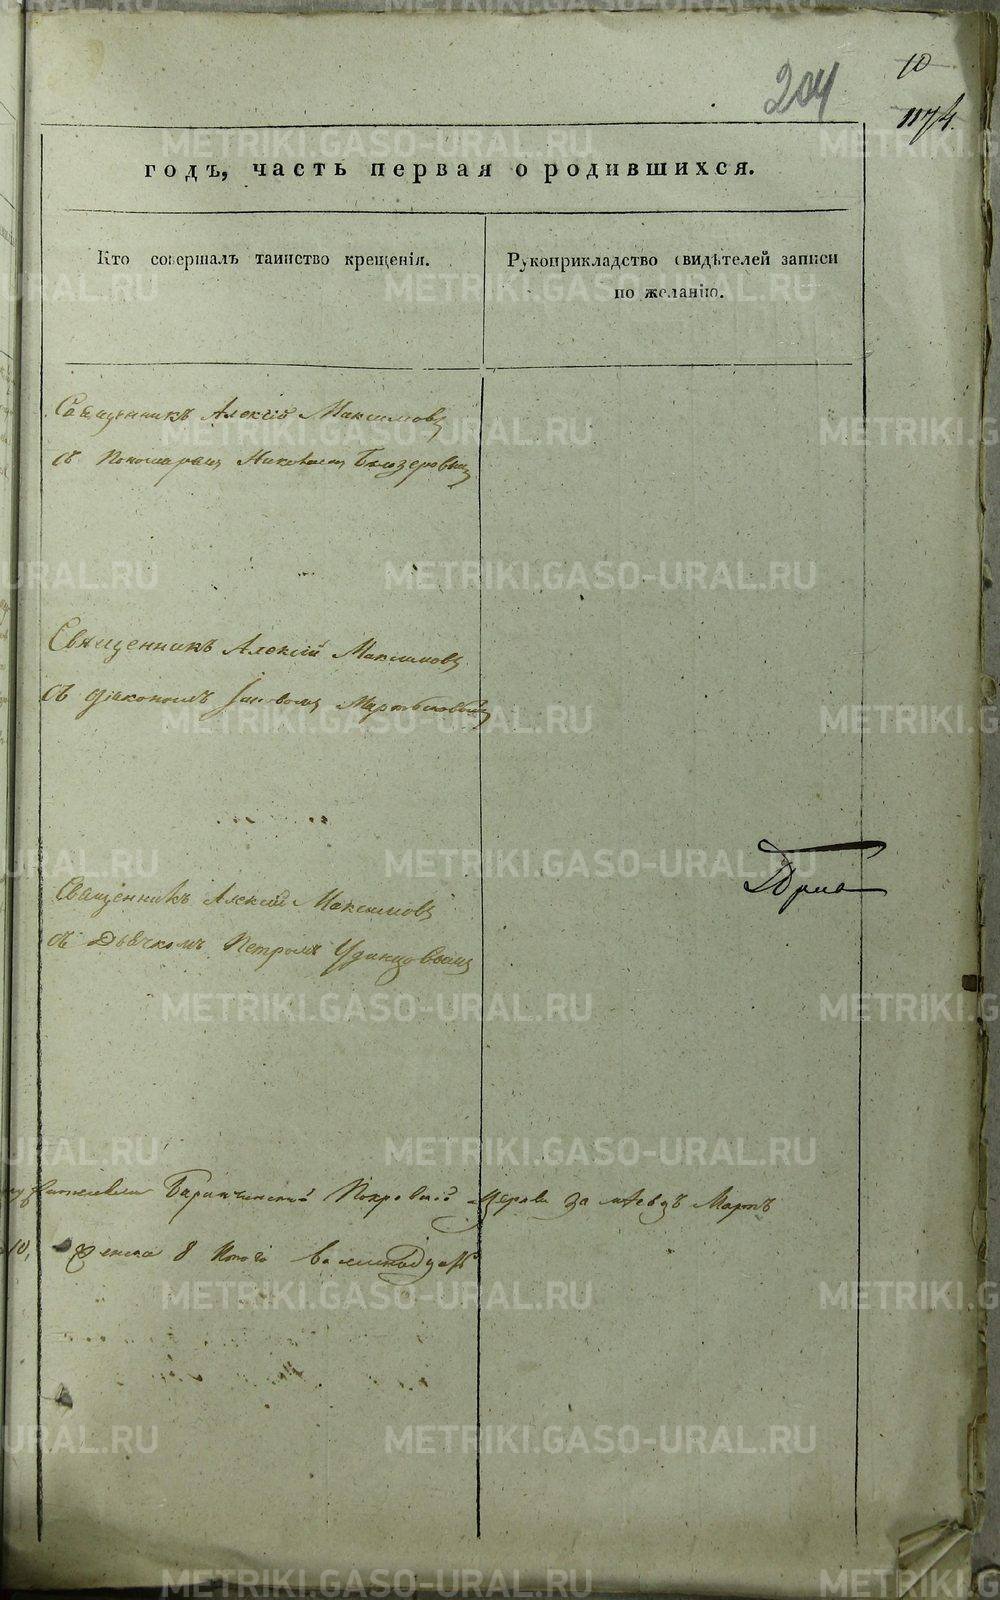 204
10
1174.
годъ, часть первая о родившихся.
Кто совершалъ таинство крещенія.
Рукоприкладство свидѣтелей записи
по желанію.
Священникъ Алексій Максимовъ
съ Пономаремъ Николаемъ Бѣлозеровымъ
Священникъ Алексій Максимовъ
съ діаконом
Священникъ Алексій Максимовъ
съ Дьячкомъ Петромъ Удинцовымъ
Баранчинской Покровской Церкви за мѣсяцъ Мартъ
10, женска 8
METRIKI.GASO-URAL.RU